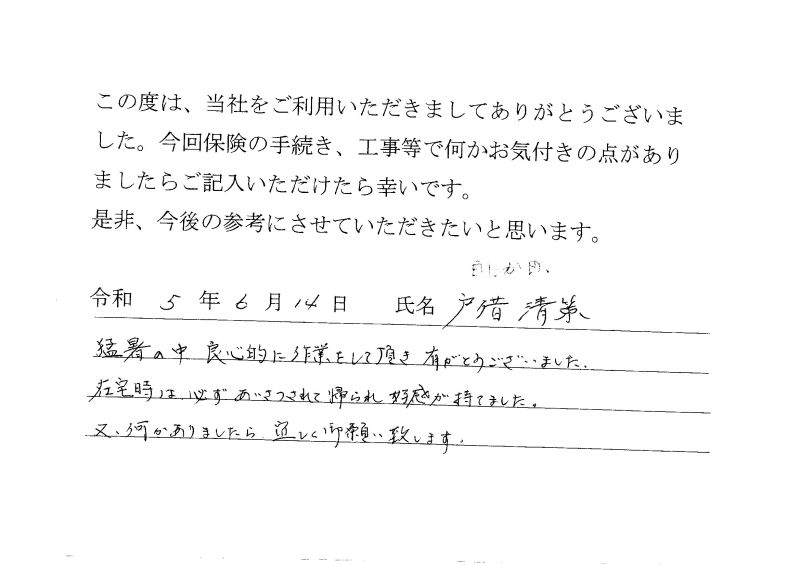 この度は、当社をご利用いただきましてありがとうございま
した。今回保険の手続き、工事等で何かお気付きの点があり
ましたらご記入いただけたら幸いです。
是非、今後の参考にさせていただきたいと思います。
令和 5 年 6 月 14 日 氏名 戸借 清策
猛暑の中 良心的に作業をして頂き 有がとうございました.
在宅時は 必ず あいさつされて帰られ 好感が持てました。
又、何かありましたら 宜しく御願い致します.